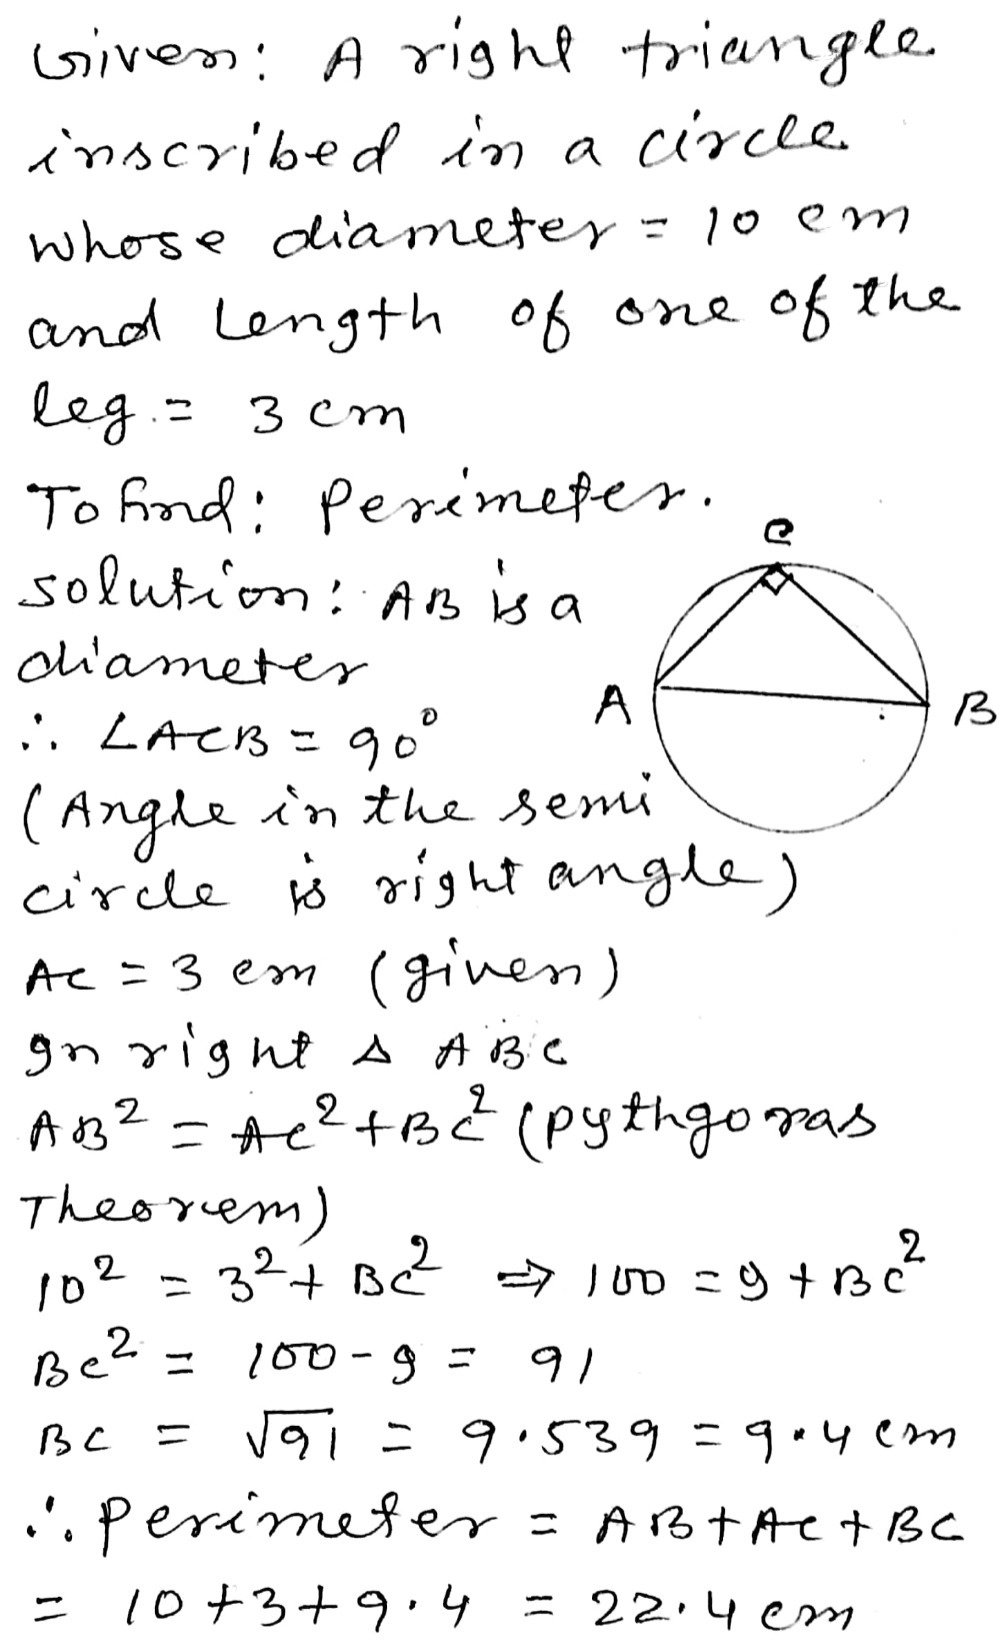 Given: A right triangle
inscribed in a circle
whose diameter = 10 cm
and Length of one of the
leg = 3 cm
To find: Perimeter.
solution: AB is a
diameter
∴ ∠ACB = 90°
(Angle in the semi
circle is right angle)
C
A
B
AC = 3 cm (given)
In right △ ABC
AB² = AC² + BC² (pythgoras
Theorem)
10² = 3² + BC² ⇒ 100 = 9 + BC²
BC² = 100 - 9 = 91
BC = √91 = 9.539 = 9.4 cm
∴ Perimeter = AB + AC + BC
= 10 + 3 + 9.4 = 22.4 cm